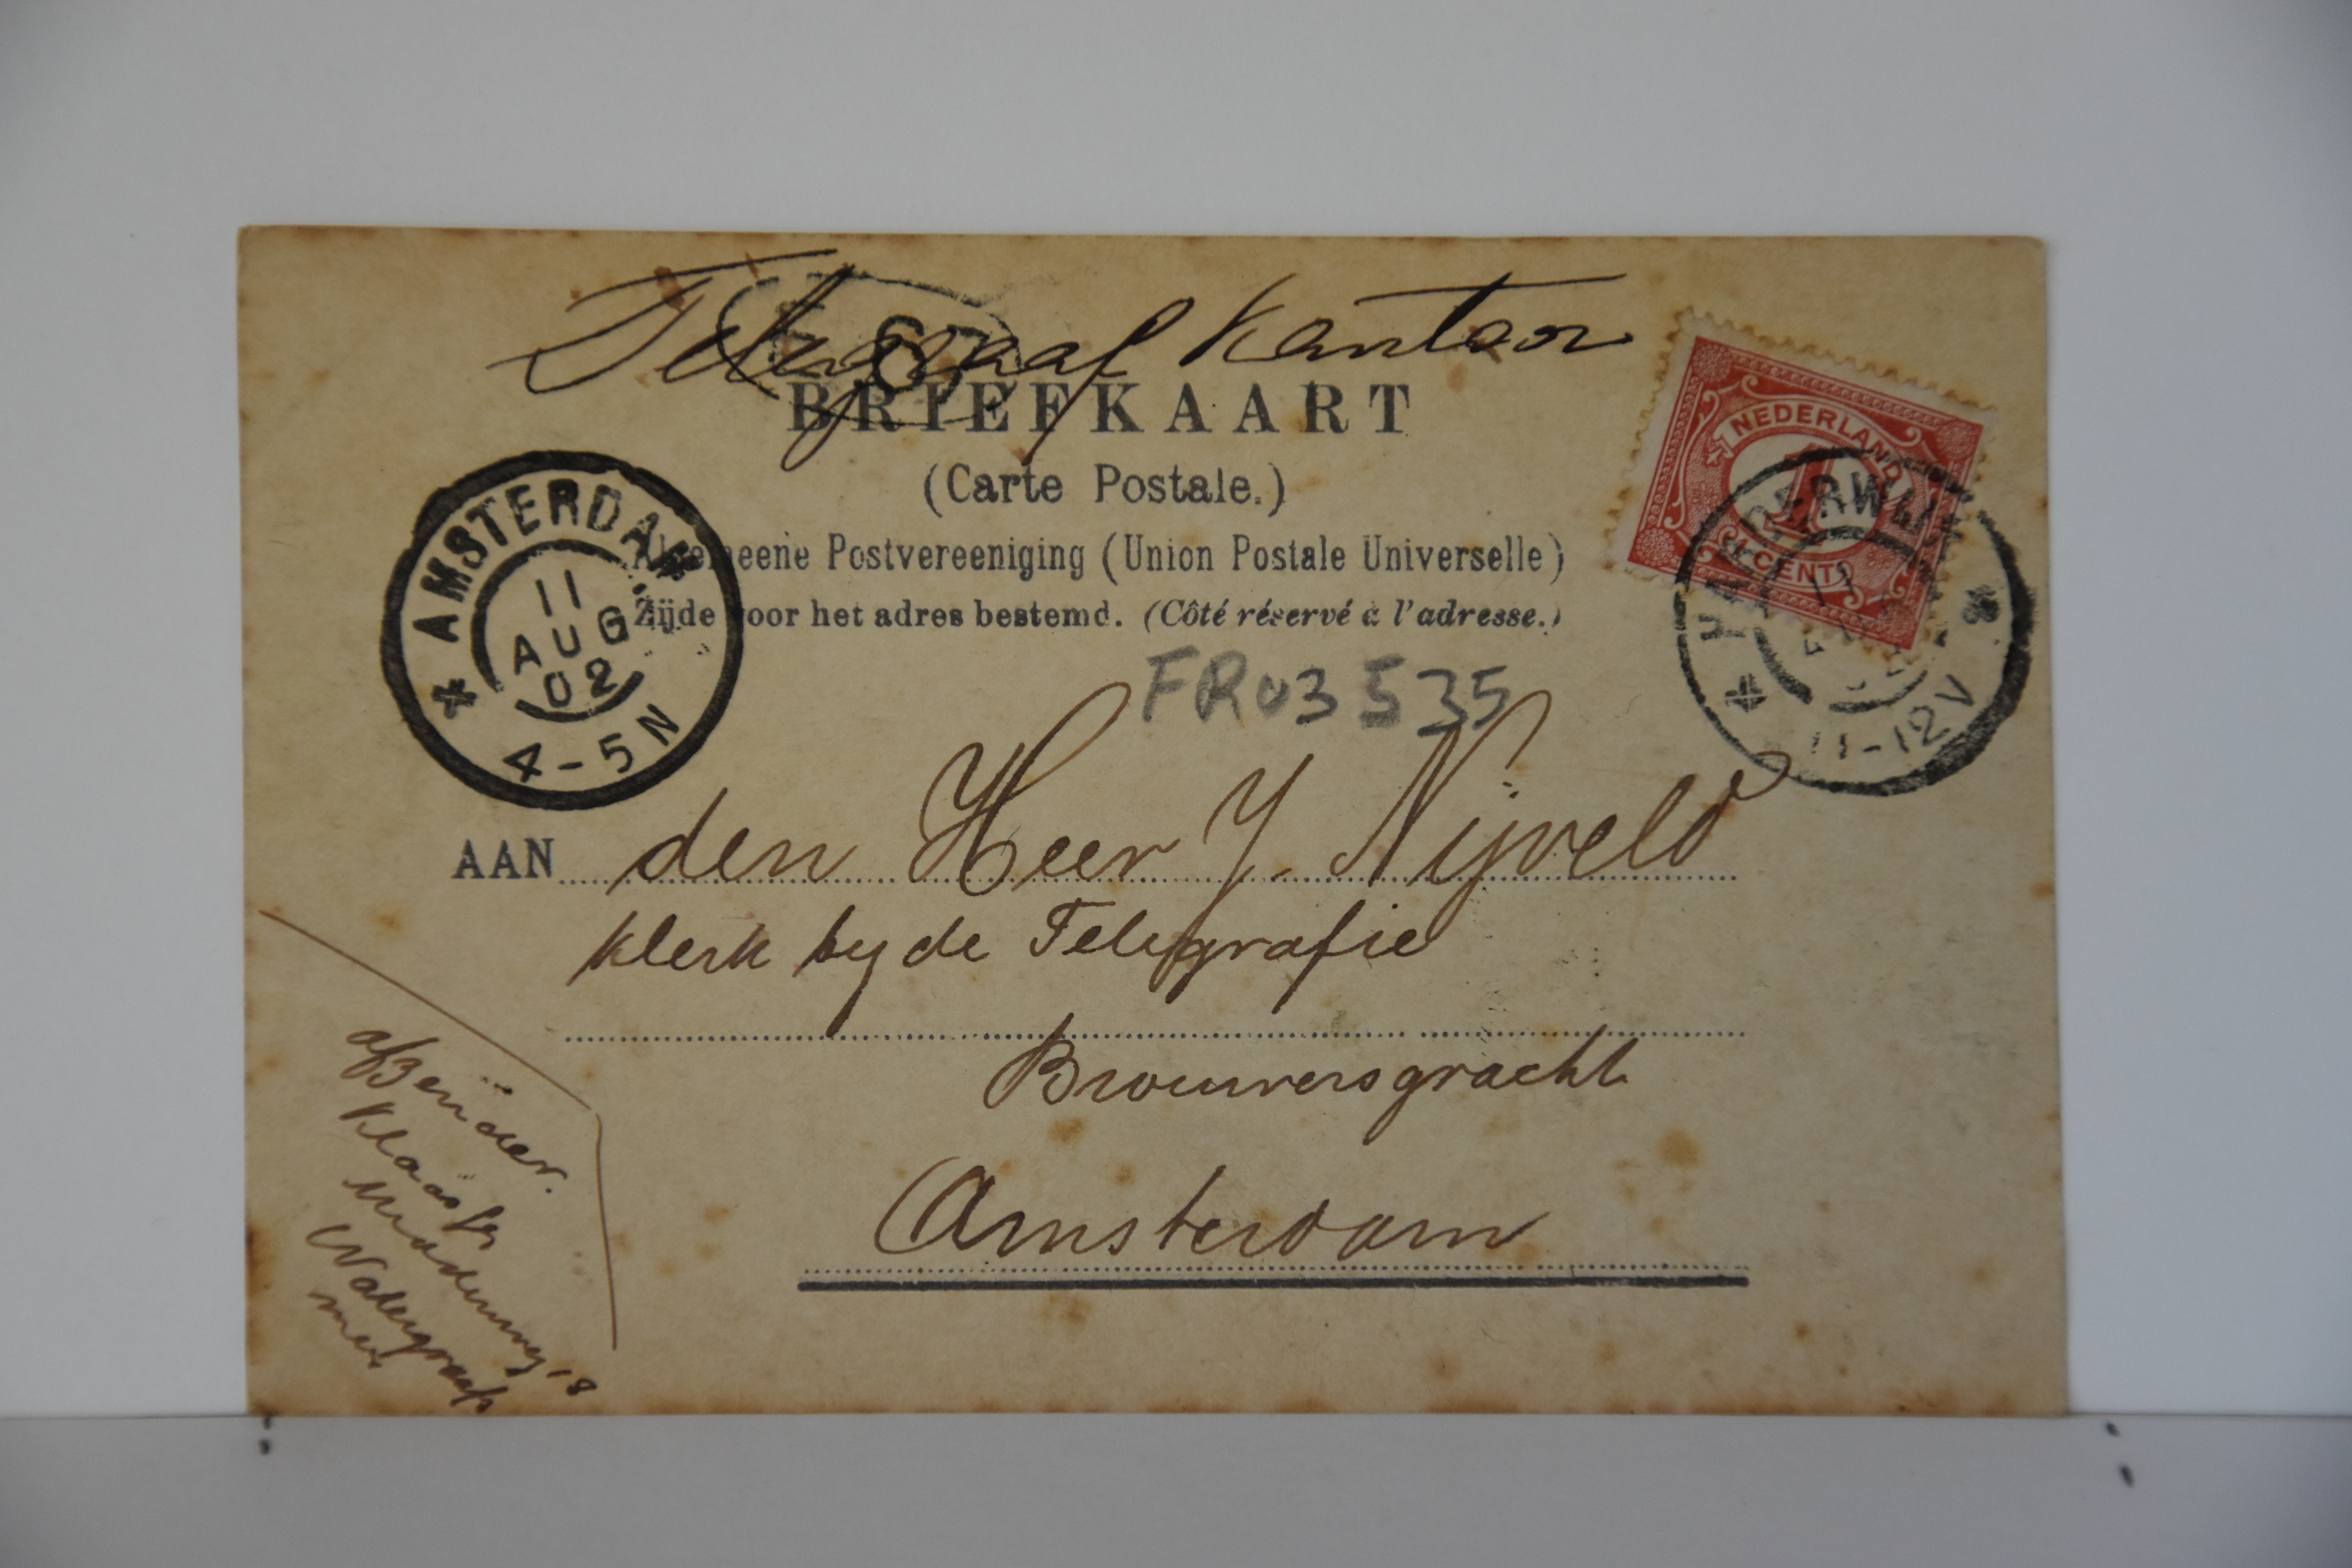 Telegraaf Kantoor
BRIEFKAART
(Carte Postale.)
Algemeene Postvereeniging (Union Postale Universelle)
Zijde voor het adres bestemd. (Côté réservé à l'adresse.)
NEDERLAND
1
CENT
HARDERWIJK
11
11-12V
AMSTERDAM
11
AUG
02
4-5N
FR03535
AAN den Heer J. Nijveld
klerk by de Telegrafie
Brouwersgracht
Amsterdam
afzender.